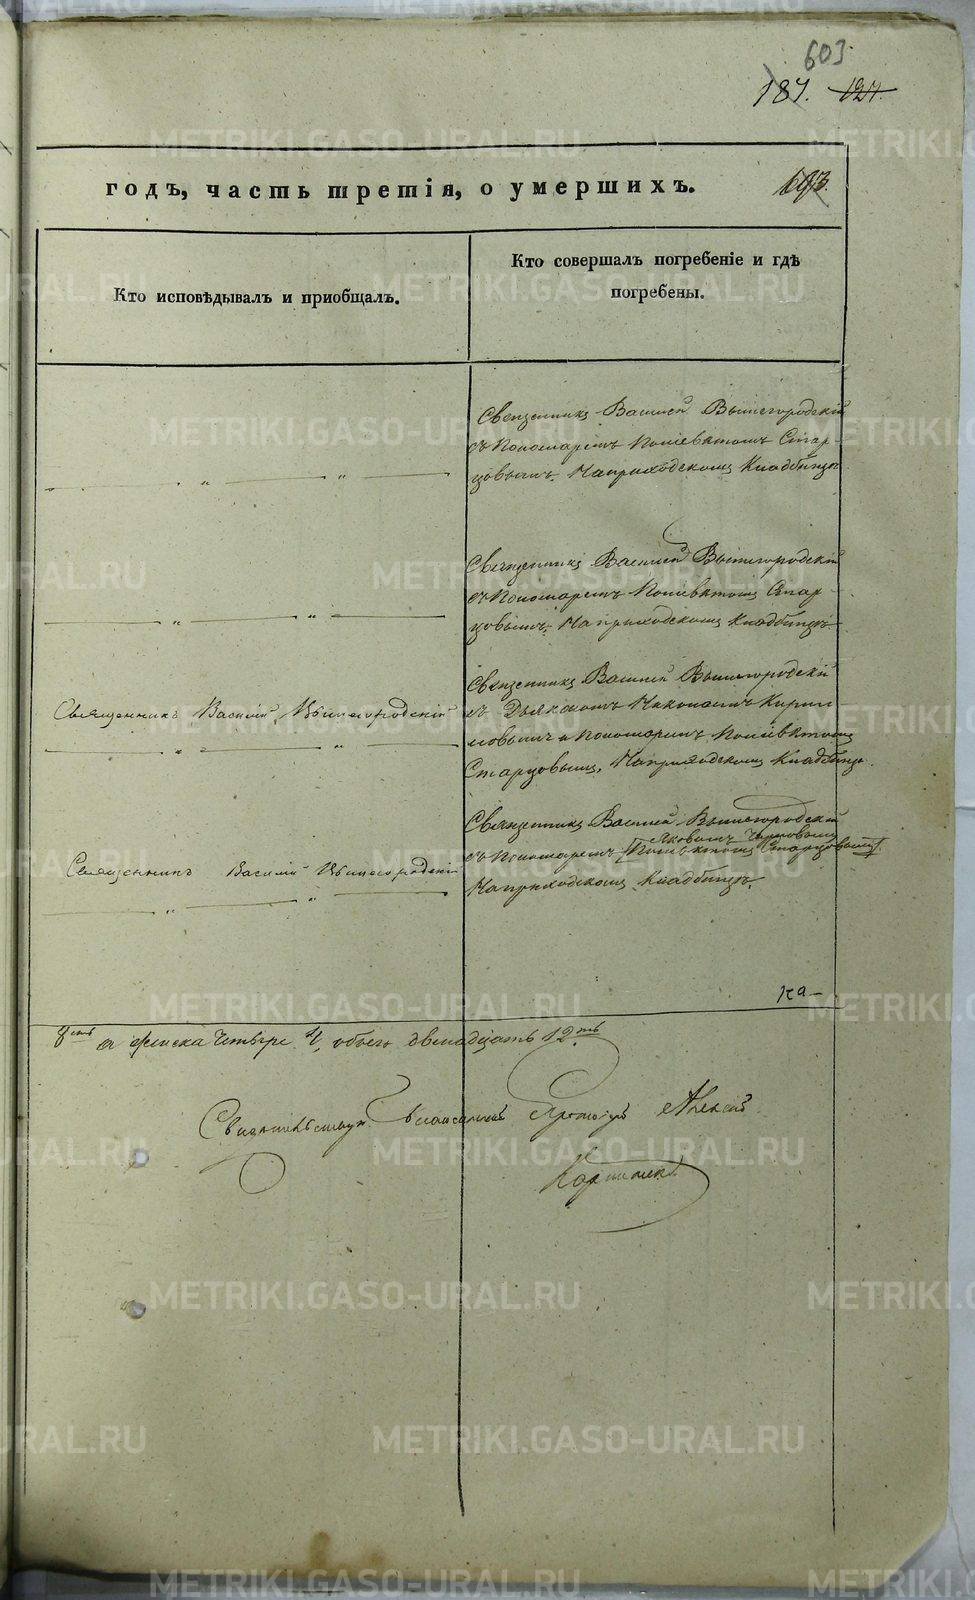 603
187. 127.
годъ, часть третія, о умершихъ.
693.
Кто исповѣдывалъ и пріобщалъ.
Кто совершалъ погребеніе и гдѣ
погребены.
Священникъ Василій Вышегородскій
съ Пономаремъ Поліевктомъ Стар-
цовымъ. На приходскомъ Кладбищѣ
Священникъ Василій Вышегородскій
съ Пономаремъ Поліевктомъ Стар-
цовымъ. На приходскомъ Кладбищѣ
Священникъ Василій Вышегородскій
Священникъ Василій Вышегородскій
съ Дьякономъ Николаемъ Кирил-
ловымъ и Пономаремъ Поліевктомъ
Старцовымъ, На приходскомъ Кладбищѣ.
Священникъ Василій Вышегородскій
Священникъ Василій Вышегородскій
Яковомъ
съ Пономаремъ Поліевктомъ Старцовымъ
На приходскомъ Кладбищѣ.
Ка-
8мь а женска четыре 4, обоего двенадцать 12ть
Свидѣтельствуя Алексій
METRIKI.GASO-URAL.RU